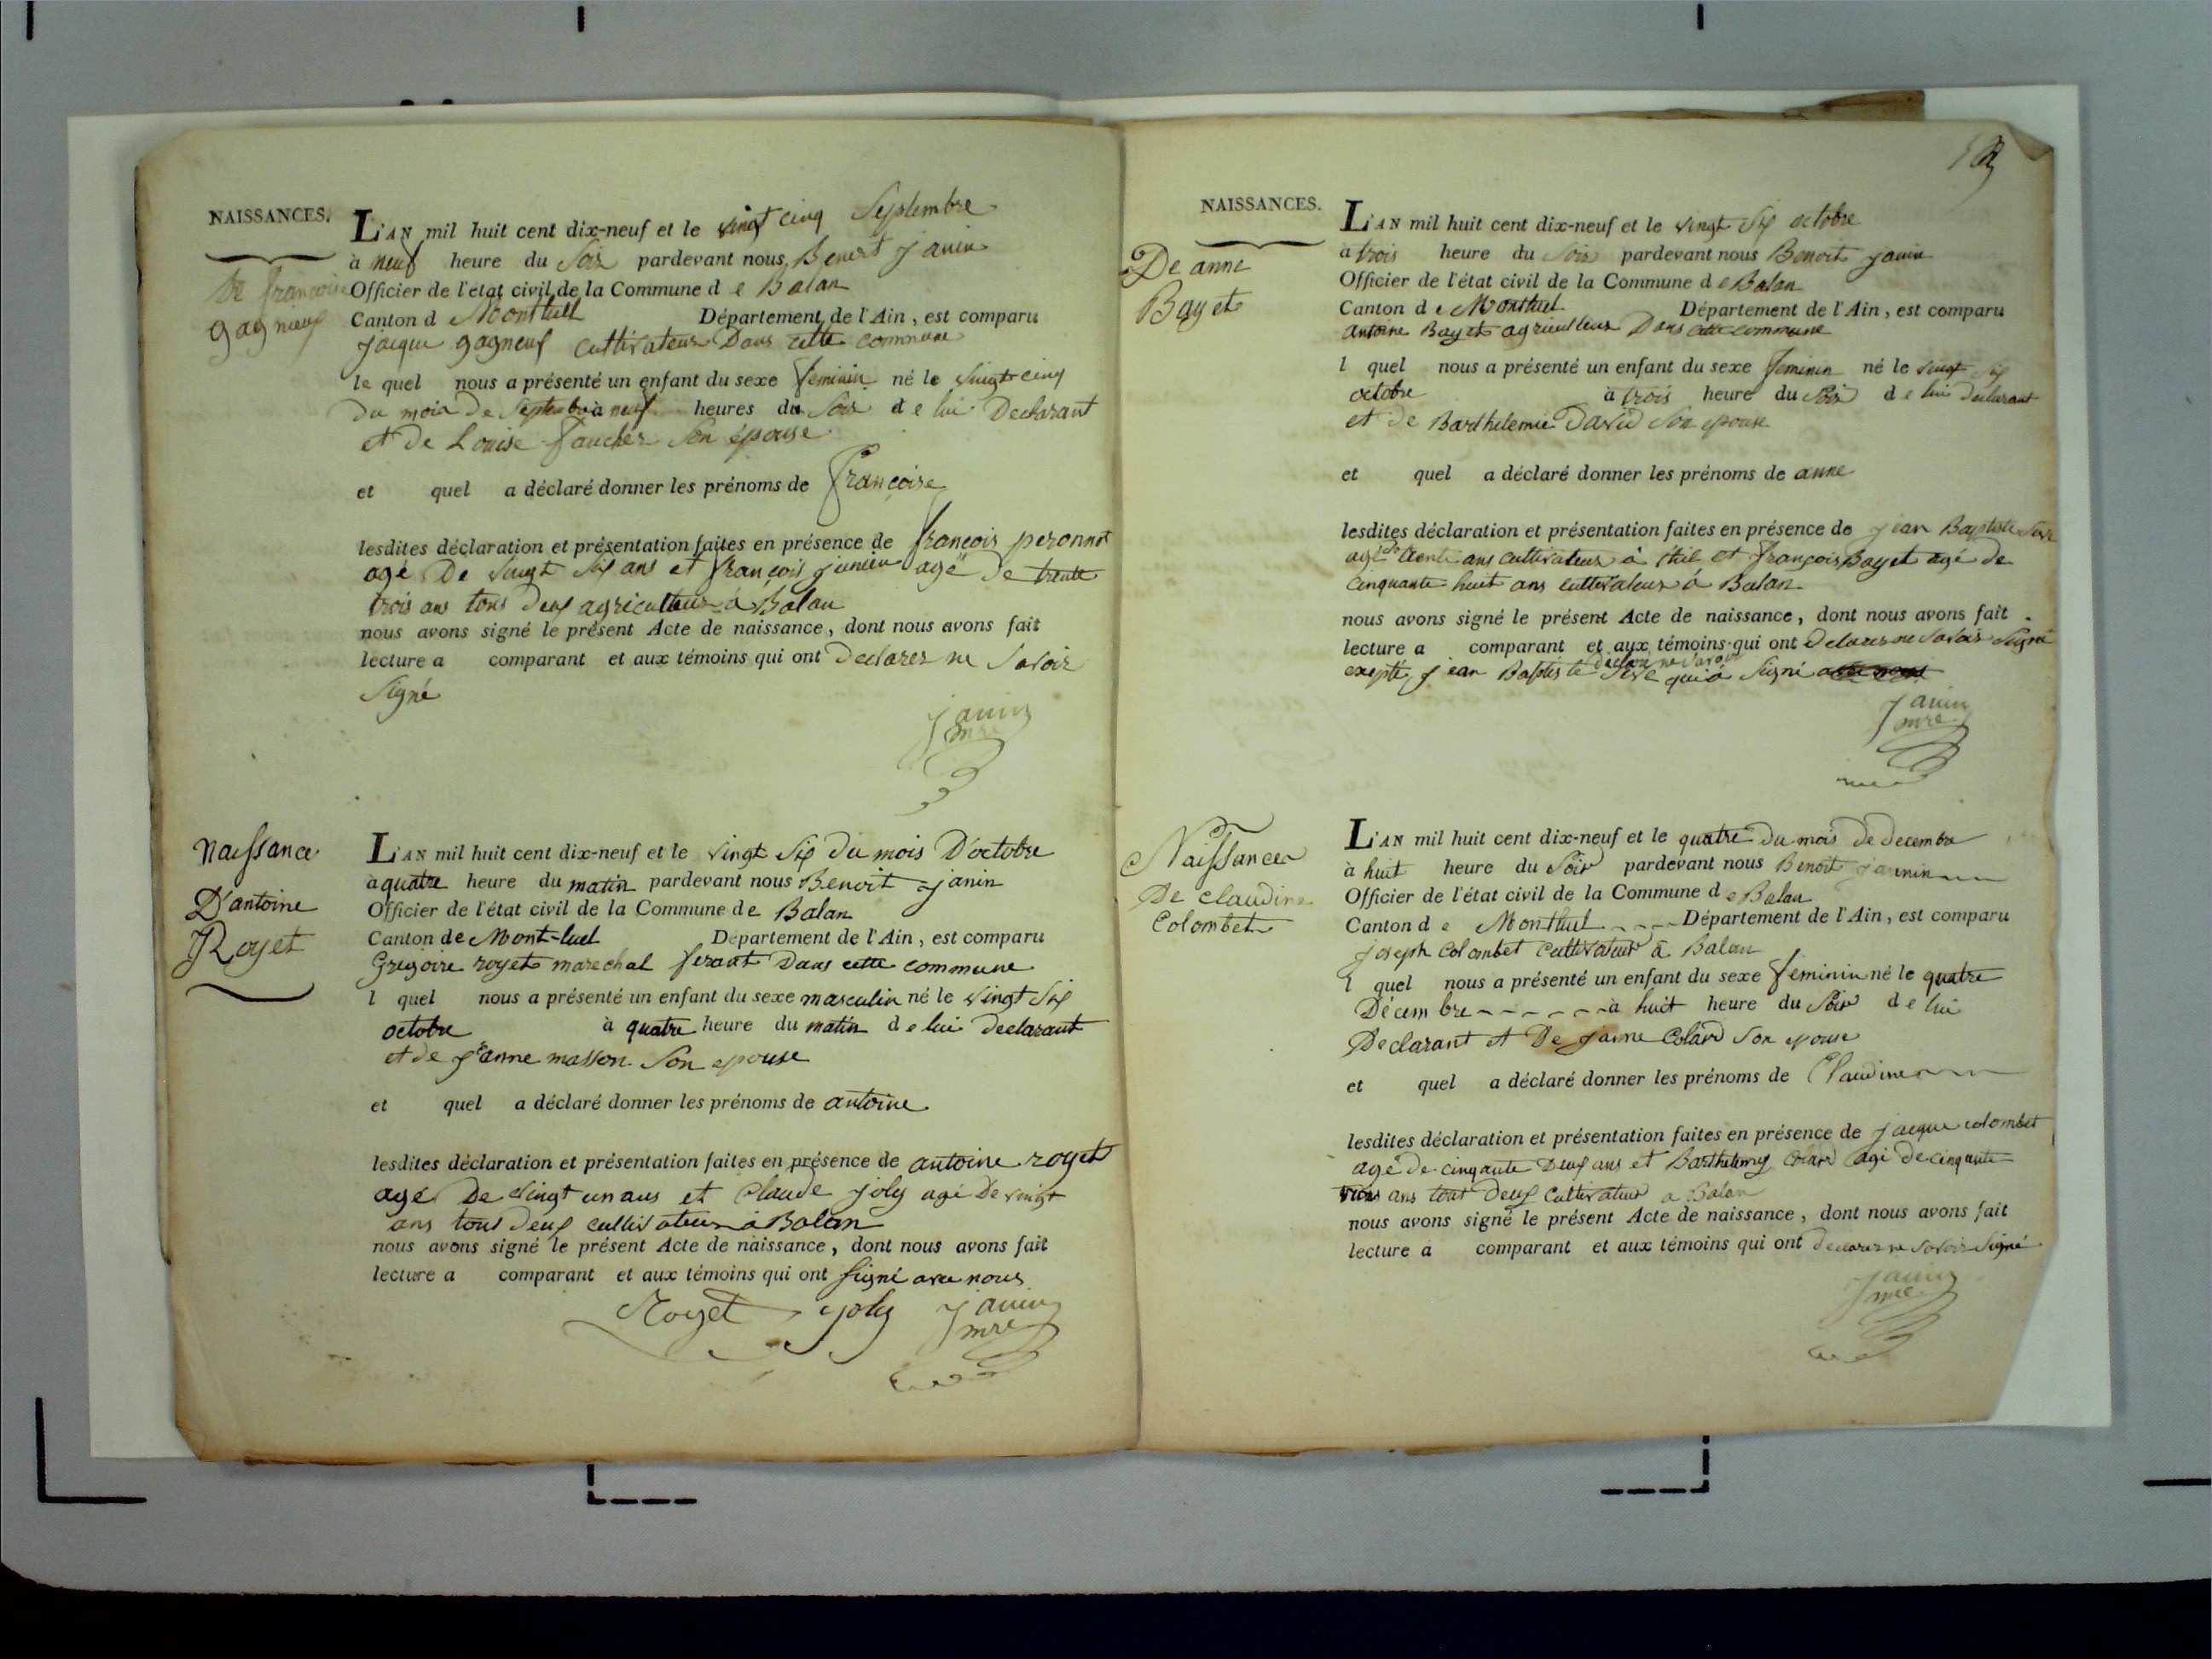 NAISSANCES.
De françoise
gagneuf
L'AN mil huit cent dix-neuf et le vingt cinq Septembre
à neuf heure du Soir pardevant nous Benoit janin
Officier de l'état civil de la Commune d e Balan
Canton d e Montluel Département de l'Ain, est comparu
jacque gagneuf cultivateur Dans cette commune
le quel nous a présenté un enfant du sexe feminin né le vingt cinq
du mois de Septembre à neuf heures du Soir d e lui Declarant
et de Louise faucher Son épouse
et quel a déclaré donner les prénoms de françoise
lesdites déclaration et présentation faites en présence de françois peronnet
agé De vingt Six ans et françois junien agé de trente
trois ans tous Deux agriculteur à Balan
nous avons signé le présent Acte de naissance, dont nous avons fait
lecture a comparant et aux témoins qui ont Declarer ne Savoir
Signé
janin
mre
Naissance
D'antoine
Royet
L'AN mil huit cent dix-neuf et le vingt Six du mois D'octobre
à quatre heure du matin pardevant nous Benoit janin
Officier de l'état civil de la Commune de Balan
Canton de Mont-luel Département de l'Ain, est comparu
Gregoire royet marechal ferant Dans cette commune
l quel nous a présenté un enfant du sexe masculin né le vingt Six
octobre à quatre heure du matin d e lui declarant
et de jeanne masson Son epouse
et quel a déclaré donner les prénoms de antoine
lesdites déclaration et présentation faites en présence de antoine royet
agé De vingt un ans et Claude joly agé De vingt
ans tous Deux cultivateur à Balan
nous avons signé le présent Acte de naissance, dont nous avons fait
lecture a comparant et aux témoins qui ont Signé avec nous
Royet joly janin
mre
NAISSANCES.
De anne
Bayet
L'AN mil huit cent dix-neuf et le vingt Six octobre
à trois heure du Soir pardevant nous Benoit janin
Officier de l'état civil de la Commune d e Balan
Canton d e Montluel Département de l'Ain, est comparu
antoine Bayet agriculteur Dans cette commune
l quel nous a présenté un enfant du sexe feminin né le vingt Six
octobre à trois heure du Soir d e lui declarant
et de Barthelemie David Son epouse
et quel a déclaré donner les prénoms de anne
lesdites déclaration et présentation faites en présence de jean Baptiste
agé de trente ans cultivateur à et françois Bayet agé de
cinquante huit ans cultivateur à Balan
nous avons signé le présent Acte de naissance, dont nous avons fait
lecture a comparant et aux témoins qui ont Declarer ne Savoir Signé
declarer ne Savoir
exepte jean Baptiste qui à Signé avec nous
janin
mre
Naissance
De claudine
Colombet
L'AN mil huit cent dix-neuf et le quatre du mois de decembre
à huit heure du Soir pardevant nous Benoit jannin
Officier de l'état civil de la Commune d e Balan
Canton d e Montluel Département de l'Ain, est comparu
joseph Colombet Cultivateur à Balan
l quel nous a présenté un enfant du sexe feminin né le quatre
Décembre à huit heure du Soir d e lui
Declarant et De janne Colard Son epouse
et quel a déclaré donner les prénoms de Claudine
lesdites déclaration et présentation faites en présence de jacque colombet
agé de cinqante Deux ans et Barthelemy Colard agé de cinqante
trois ans tout Deux Cultivateur a Balan
nous avons signé le présent Acte de naissance, dont nous avons fait
lecture a comparant et aux témoins qui ont declarer ne Savoir Signé
janin
mre